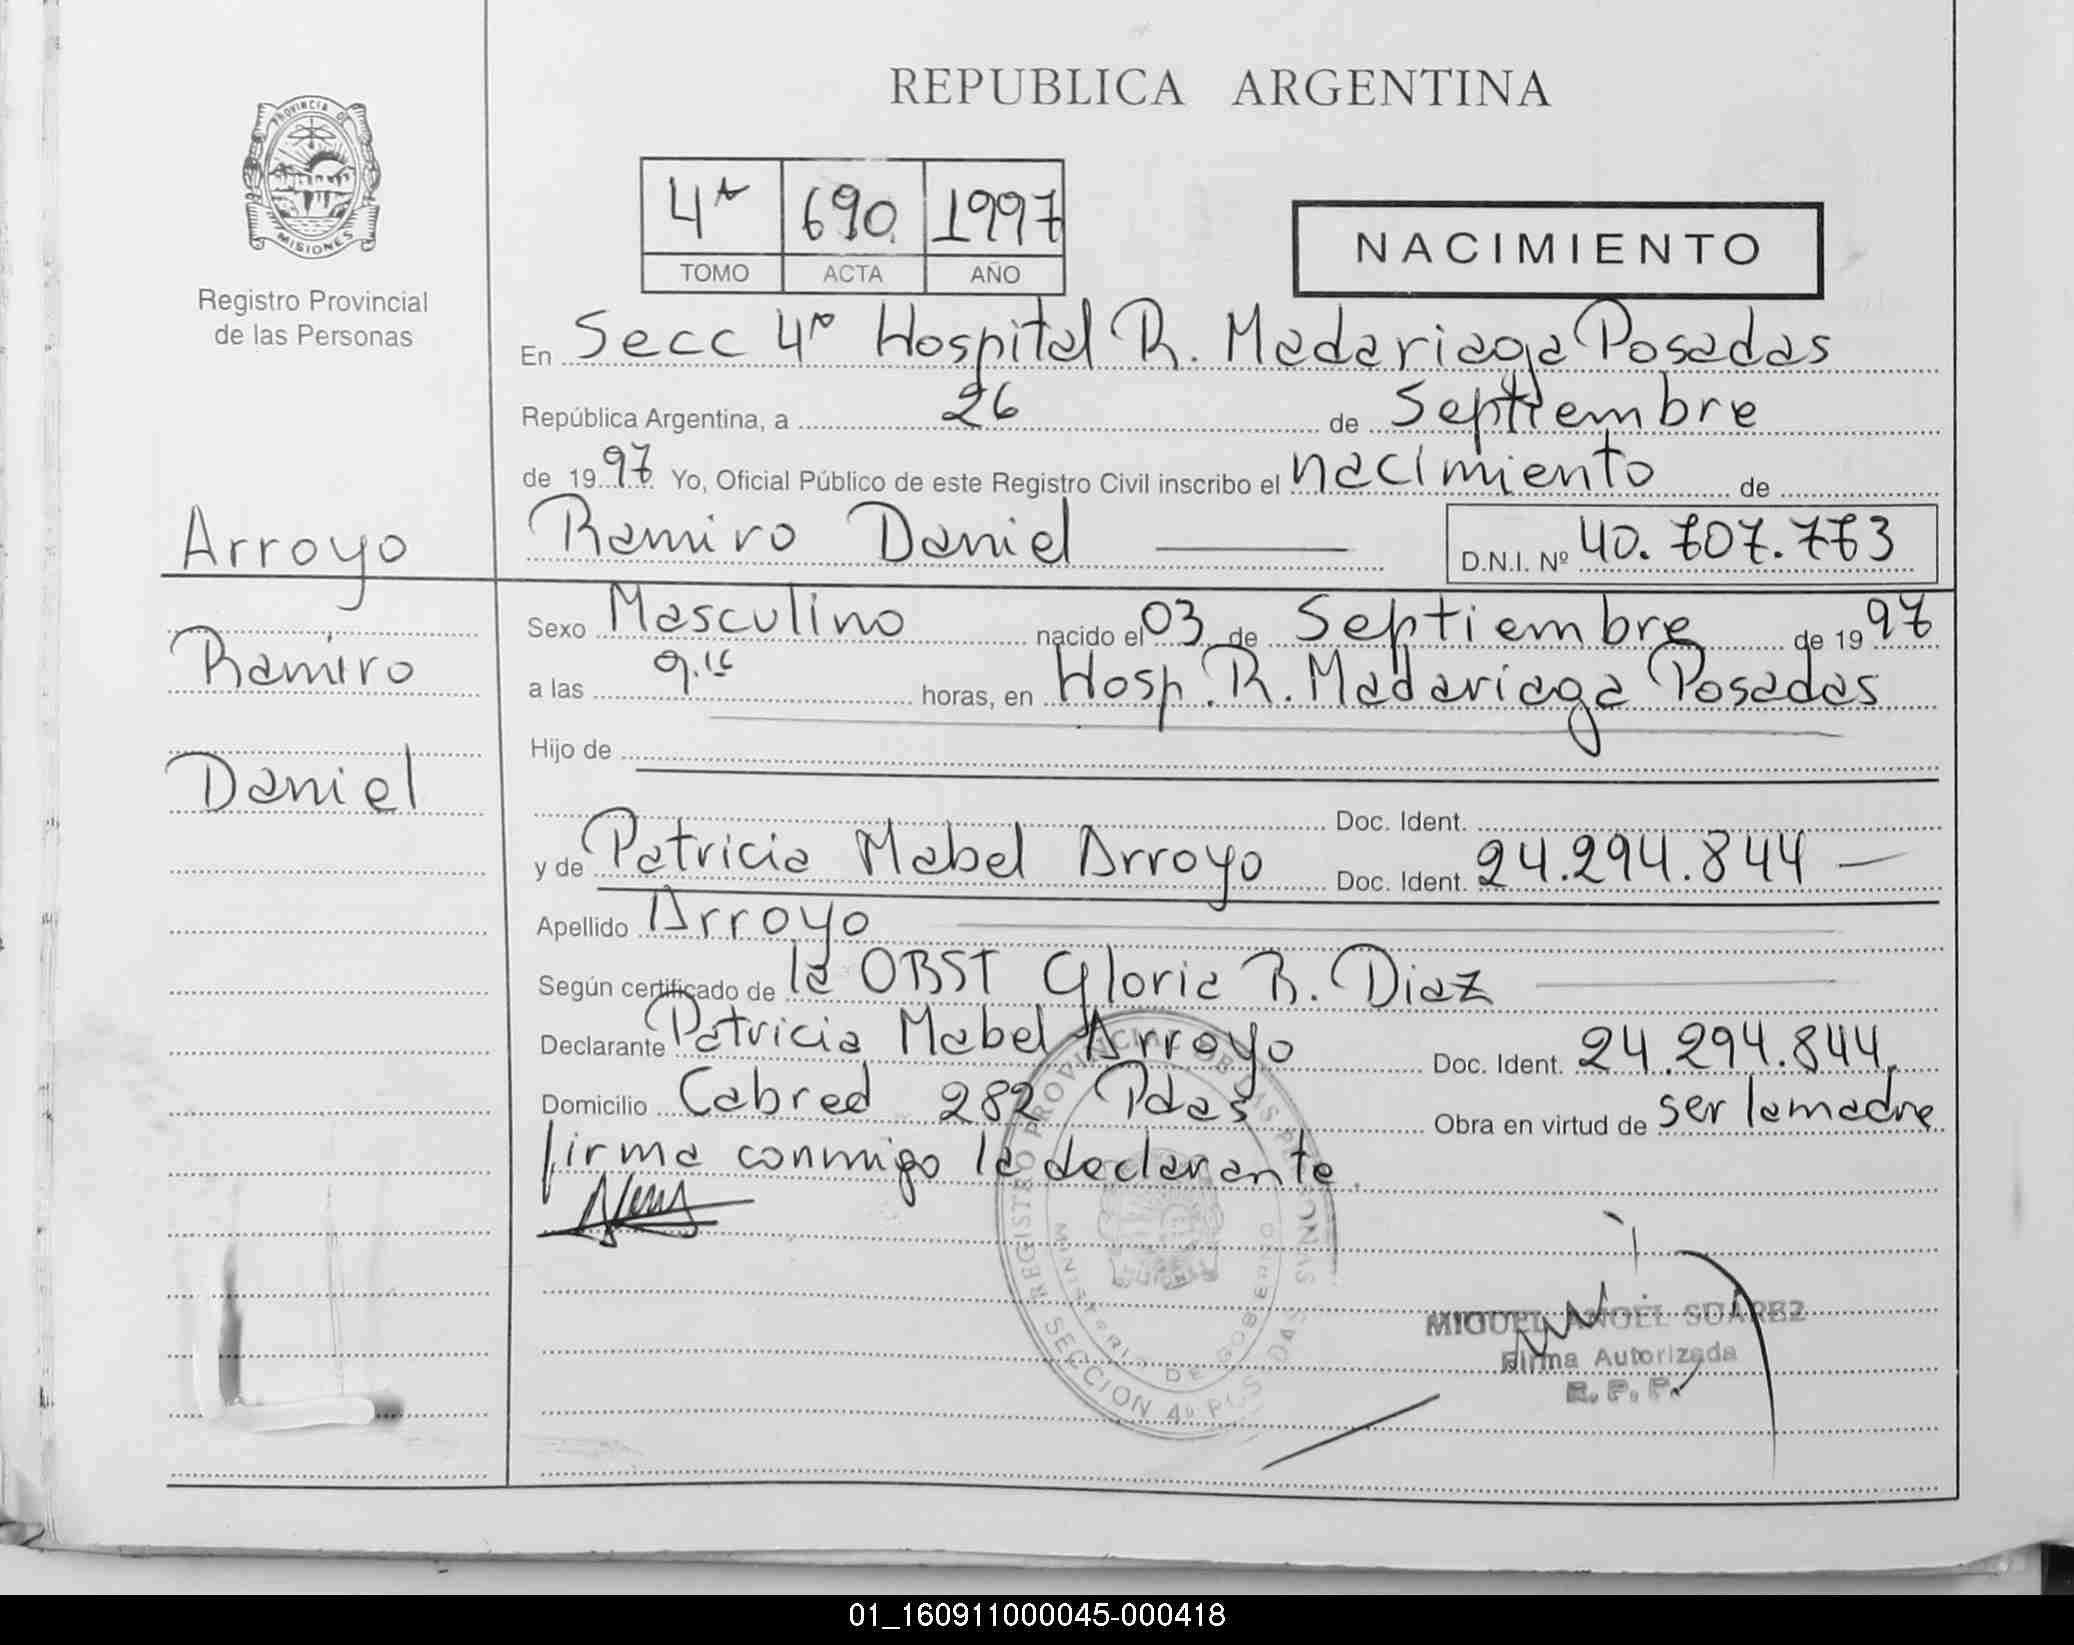 REPUBLICA ARGENTINA
PROVINCIA DE MISIONES
Registro Provincial
de las Personas
4ª 690 1997
TOMO ACTA AÑO
NACIMIENTO
En Secc 4ª Hospital R. Madariaga Posadas
República Argentina, a 26 de Septiembre
de 1997 Yo, Oficial Público de este Registro Civil inscribo el nacimiento de
Arroyo
Ramiro Daniel D.N.I. Nº 40.707.773
Sexo Masculino nacido el 03 de Septiembre de 1997
Ramiro
a las 9.15 horas, en Hosp. R. Madariaga Posadas
Hijo de
Daniel
Doc. Ident.
y de Patricia Mabel Arroyo Doc. Ident. 24.294.844
Apellido Arroyo
Según certificado de la OBST Gloria R. Diaz
Declarante Patricia Mabel Arroyo Doc. Ident. 24.294.844
Domicilio Cabred 282 Pdas Obra en virtud de ser la madre
firma conmigo la declarante.
REGISTRO PROVINCIAL DE LAS PERSONAS
MINISTERIO DE GOBIERNO
SECCION 4ª POSADAS
MIGUEL ANGEL SUAREZ
Firma Autorizada
R. P. P.
01_160911000045-000418